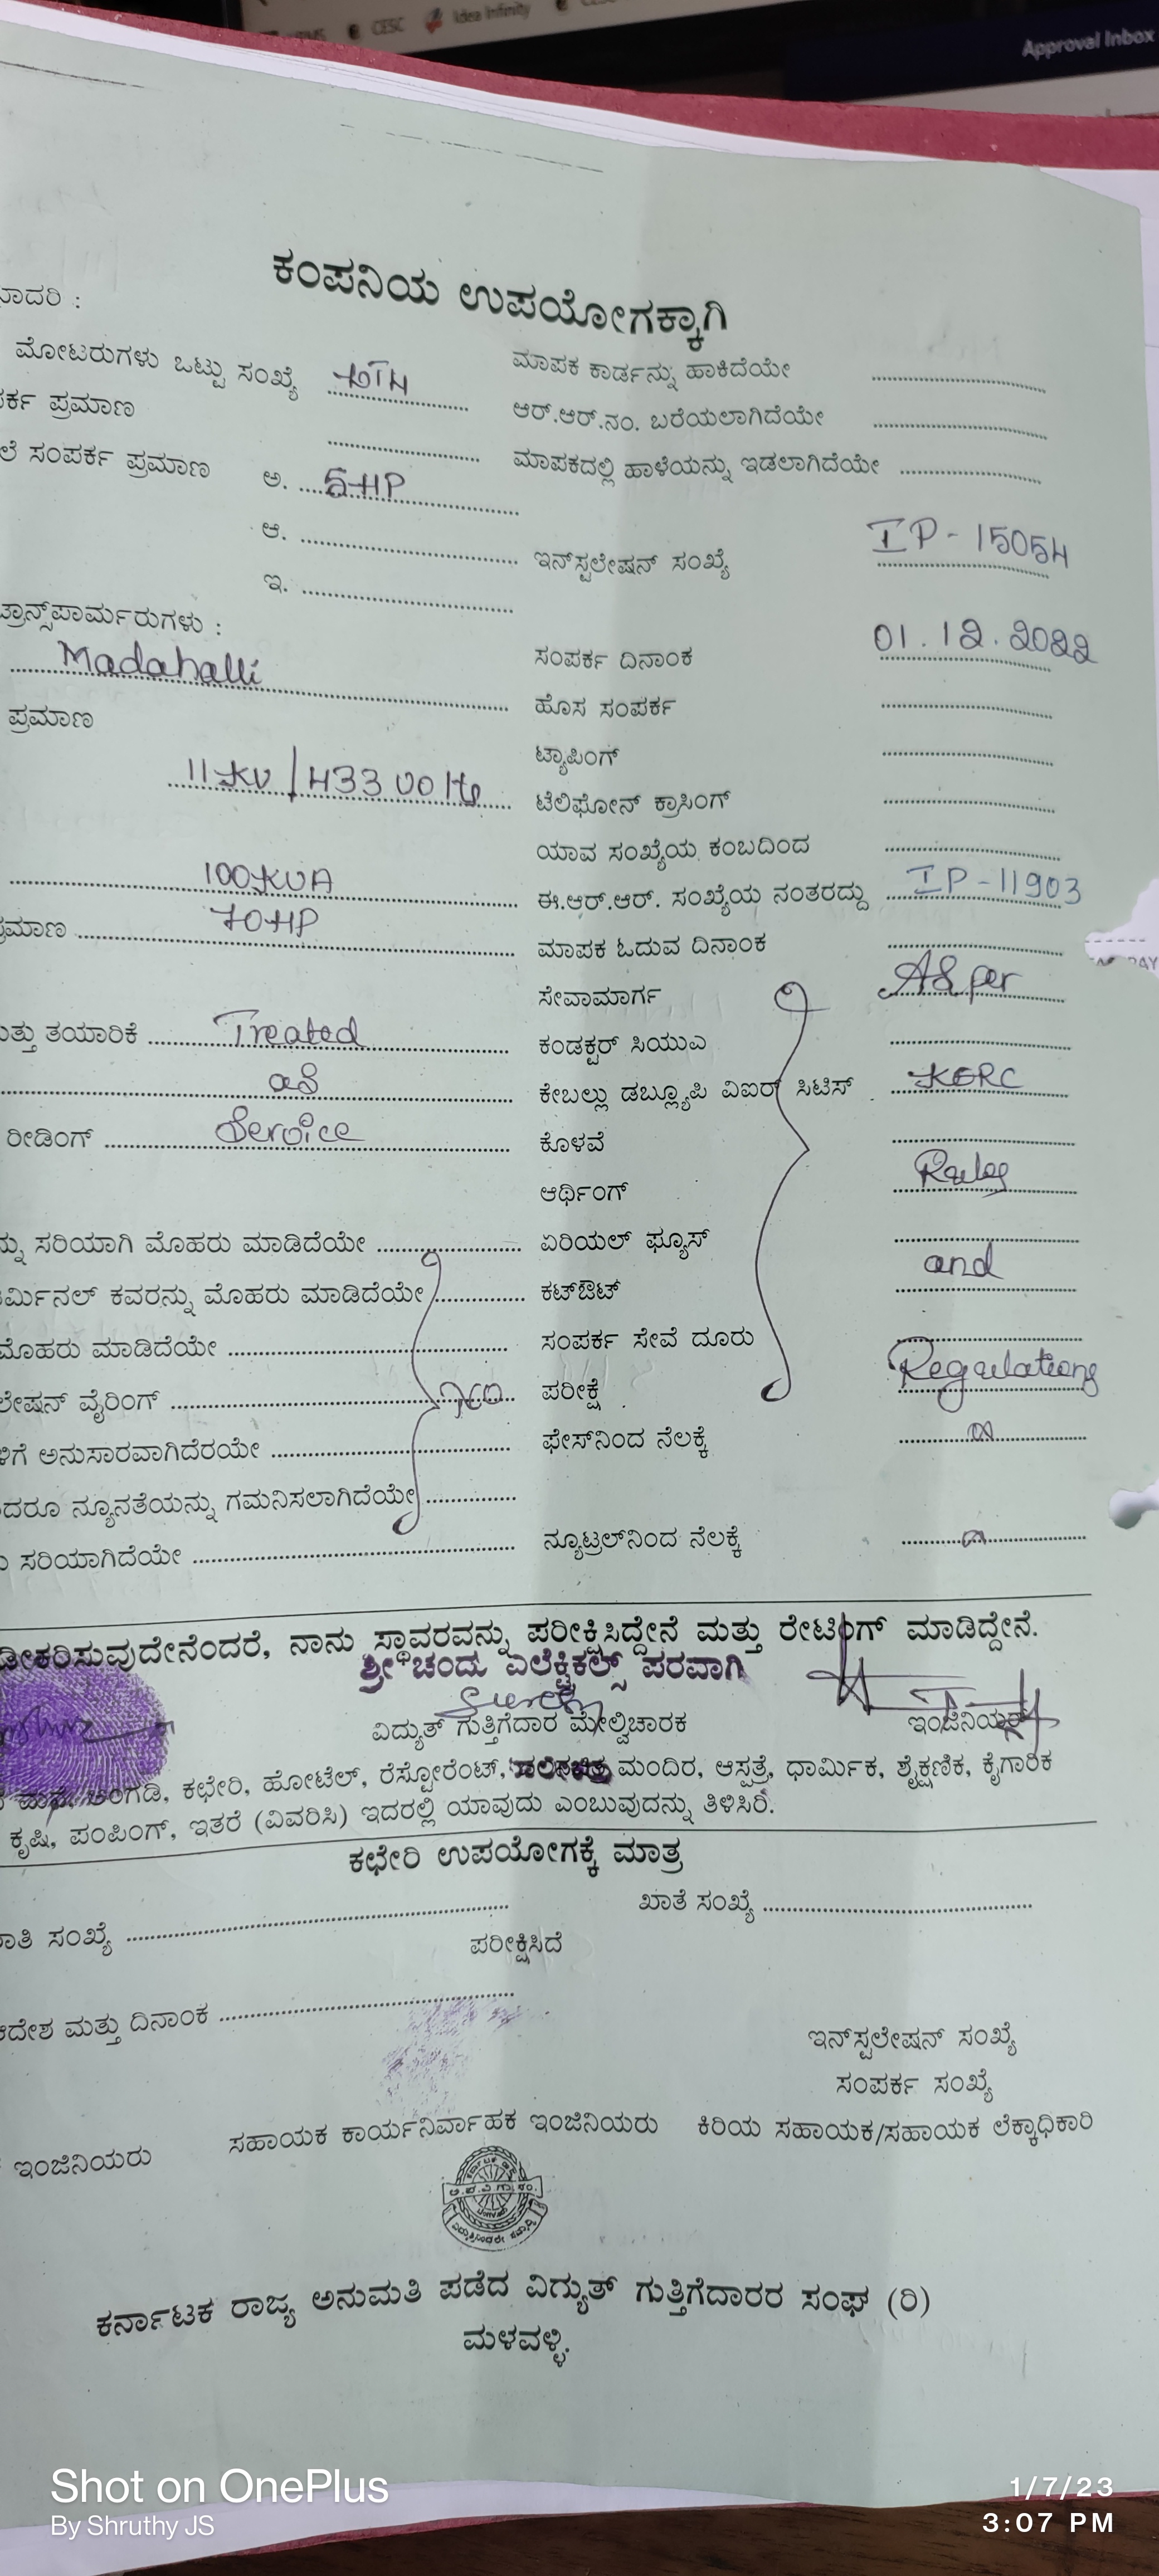 CESC Idea Infinity
Approval Inbox
ಕಂಪನಿಯ ಉಪಯೋಗಕ್ಕಾಗಿ
ಮಾದರಿ :
ಮೋಟರುಗಳು ಒಟ್ಟು ಸಂಖ್ಯೆ ಮಾಪಕ ಕಾರ್ಡನ್ನು ಹಾಕಿದೆಯೇ
ಪ್ರಮಾಣ ಆರ್.ಆರ್.ನಂ. ಬರೆಯಲಾಗಿದೆಯೇ
ಸಂಪರ್ಕ ಪ್ರಮಾಣ ಅ. 5HP ಮಾಪಕದಲ್ಲಿ ಹಾಳೆಯನ್ನು ಇಡಲಾಗಿದೆಯೇ
ಆ. ಇನ್‌ಸ್ಟಲೇಷನ್ ಸಂಖ್ಯೆ IP-15054
ಇ.
ಟ್ರಾನ್ಸ್‌ಪಾರ್ಮರುಗಳು :
Madahalli ಸಂಪರ್ಕ ದಿನಾಂಕ 01.12.2022
ಪ್ರಮಾಣ ಹೊಸ ಸಂಪರ್ಕ
ಟ್ಯಾಪಿಂಗ್
11KV/433 Volts ಟೆಲಿಫೋನ್ ಕ್ರಾಸಿಂಗ್
ಯಾವ ಸಂಖ್ಯೆಯ ಕಂಬದಿಂದ
100KVA ಈ.ಆರ್.ಆರ್. ಸಂಖ್ಯೆಯ ನಂತರದ್ದು IP-11903
ಪ್ರಮಾಣ 70HP ಮಾಪಕ ಓದುವ ದಿನಾಂಕ
ಸೇವಾಮಾರ್ಗ As per
ಮತ್ತು ತಯಾರಿಕೆ Treated ಕಂಡಕ್ಟರ್ ಸಿಯುಎ
as ಕೇಬಲ್ಲು ಡಬ್ಲ್ಯೂಪಿ ವಿಐರ್ ಸಿಟಿಸ್ KERC
ರೀಡಿಂಗ್ Service ಕೊಳವೆ
ಆರ್ಥಿಂಗ್ Rules
ಸರಿಯಾಗಿ ಮೊಹರು ಮಾಡಿದೆಯೇ ಏರಿಯಲ್ ಫ್ಯೂಸ್
ಕವರನ್ನು ಮೊಹರು ಮಾಡಿದೆಯೇ ಕಟ್‌ಔಟ್ and
ಮೊಹರು ಮಾಡಿದೆಯೇ ಸಂಪರ್ಕ ಸೇವೆ ದೂರು
ವೈರಿಂಗ್ ಪರೀಕ್ಷೆ Regulations
ಅನುಸಾರವಾಗಿದೆರಯೇ ಫೇಸ್‌ನಿಂದ ನೆಲಕ್ಕೆ
ನ್ಯೂನತೆಯನ್ನು ಗಮನಿಸಲಾಗಿದೆಯೇ
ಸರಿಯಾಗಿದೆಯೇ ನ್ಯೂಟ್ರಲ್‌ನಿಂದ ನೆಲಕ್ಕೆ
ನಾನು ಸ್ಥಾವರವನ್ನು ಪರೀಕ್ಷಿಸಿದ್ದೇನೆ ಮತ್ತು ರೇಟಿಂಗ್ ಮಾಡಿದ್ದೇನೆ.
ಶ್ರೀ ಚಂದು ಎಲೆಕ್ಟ್ರಿಕಲ್ಸ್ ಪರವಾಗಿ
ವಿದ್ಯುತ್ ಗುತ್ತಿಗೆದಾರ ಮೇಲ್ವಿಚಾರಕ ಇಂಜಿನಿಯರ್
ಅಂಗಡಿ, ಕಛೇರಿ, ಹೋಟೆಲ್, ರೆಸ್ಟೋರೆಂಟ್, ಮಂದಿರ, ಆಸ್ಪತ್ರೆ, ಧಾರ್ಮಿಕ, ಶೈಕ್ಷಣಿಕ, ಕೈಗಾರಿಕ
ಕೃಷಿ, ಪಂಪಿಂಗ್, ಇತರೆ (ವಿವರಿಸಿ) ಇದರಲ್ಲಿ ಯಾವುದು ಎಂಬುವುದನ್ನು ತಿಳಿಸಿರಿ.
ಕಛೇರಿ ಉಪಯೋಗಕ್ಕೆ ಮಾತ್ರ
ಸಂಖ್ಯೆ ಖಾತೆ ಸಂಖ್ಯೆ
ಪರೀಕ್ಷಿಸಿದೆ
ಆದೇಶ ಮತ್ತು ದಿನಾಂಕ
ಇನ್‌ಸ್ಟಲೇಷನ್ ಸಂಖ್ಯೆ
ಸಂಪರ್ಕ ಸಂಖ್ಯೆ
ಇಂಜಿನಿಯರು ಸಹಾಯಕ ಕಾರ್ಯನಿರ್ವಾಹಕ ಇಂಜಿನಿಯರು ಕಿರಿಯ ಸಹಾಯಕ/ಸಹಾಯಕ ಲೆಕ್ಕಾಧಿಕಾರಿ
ಕರ್ನಾಟಕ ರಾಜ್ಯ ಅನುಮತಿ ಪಡೆದ ವಿಗ್ಯುತ್ ಗುತ್ತಿಗೆದಾರರ ಸಂಘ (ರಿ)
ಮಳವಳ್ಳಿ.
Shot on OnePlus
By Shruthy JS
1/7/23
3:07 PM